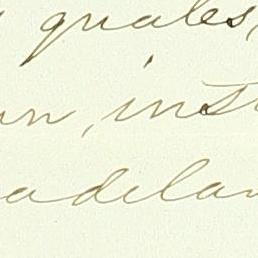 quales,
un, inst
adelan